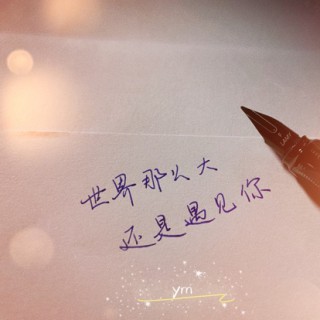 世界那么大
还是遇见你
ym